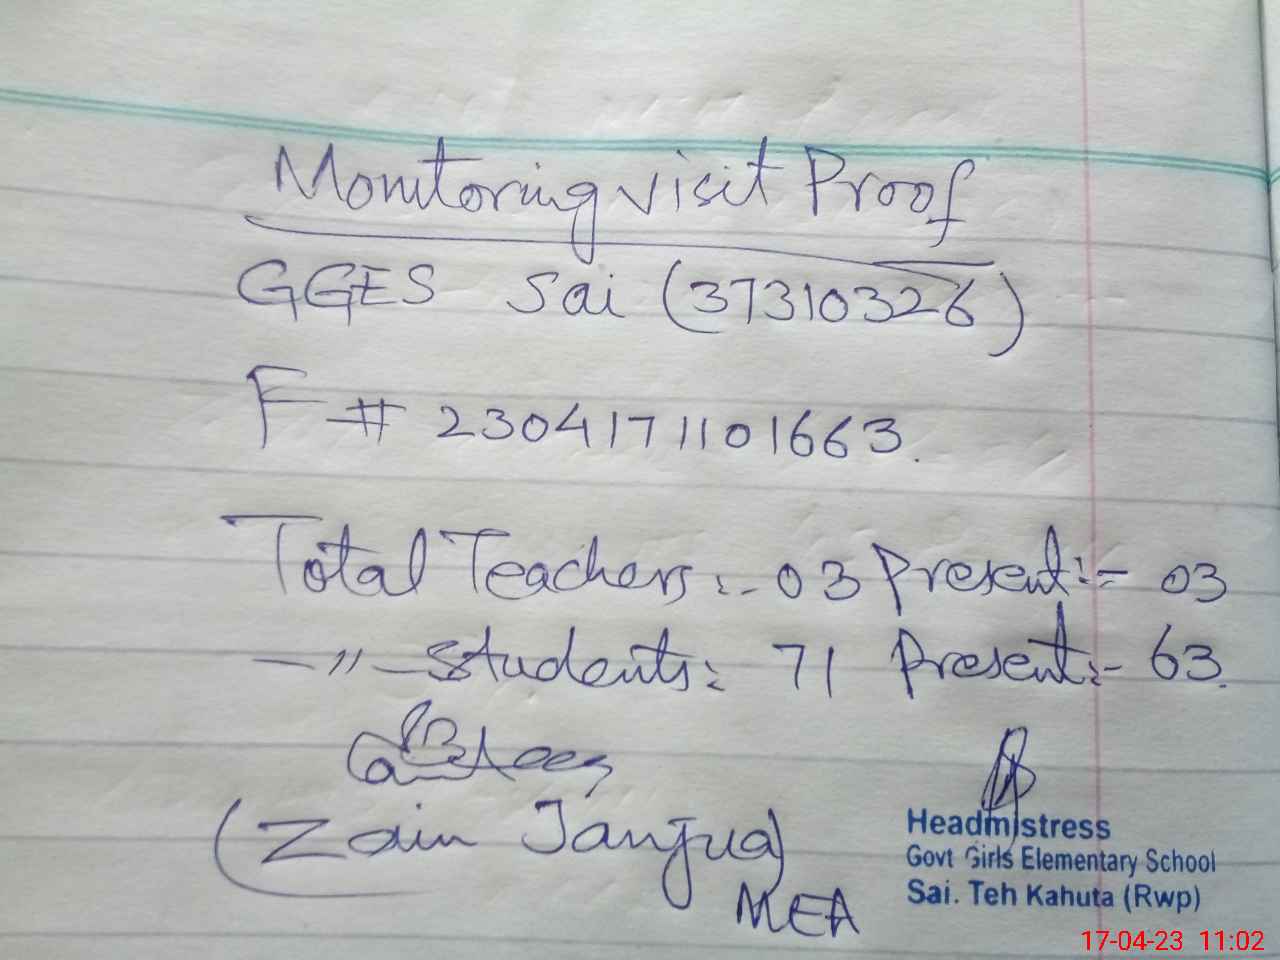 Monitoring visit Proof
GGES Sai (37310326)
F # 2304171101663.
Total Teachers :- 03 Present :- 03
-〃- Students : 71 Present :- 63.
(Zain Janjua)
MEA
Headmistress
Govt Girls Elementary School
Sai. Teh Kahuta (Rwp)
17-04-23 11:02